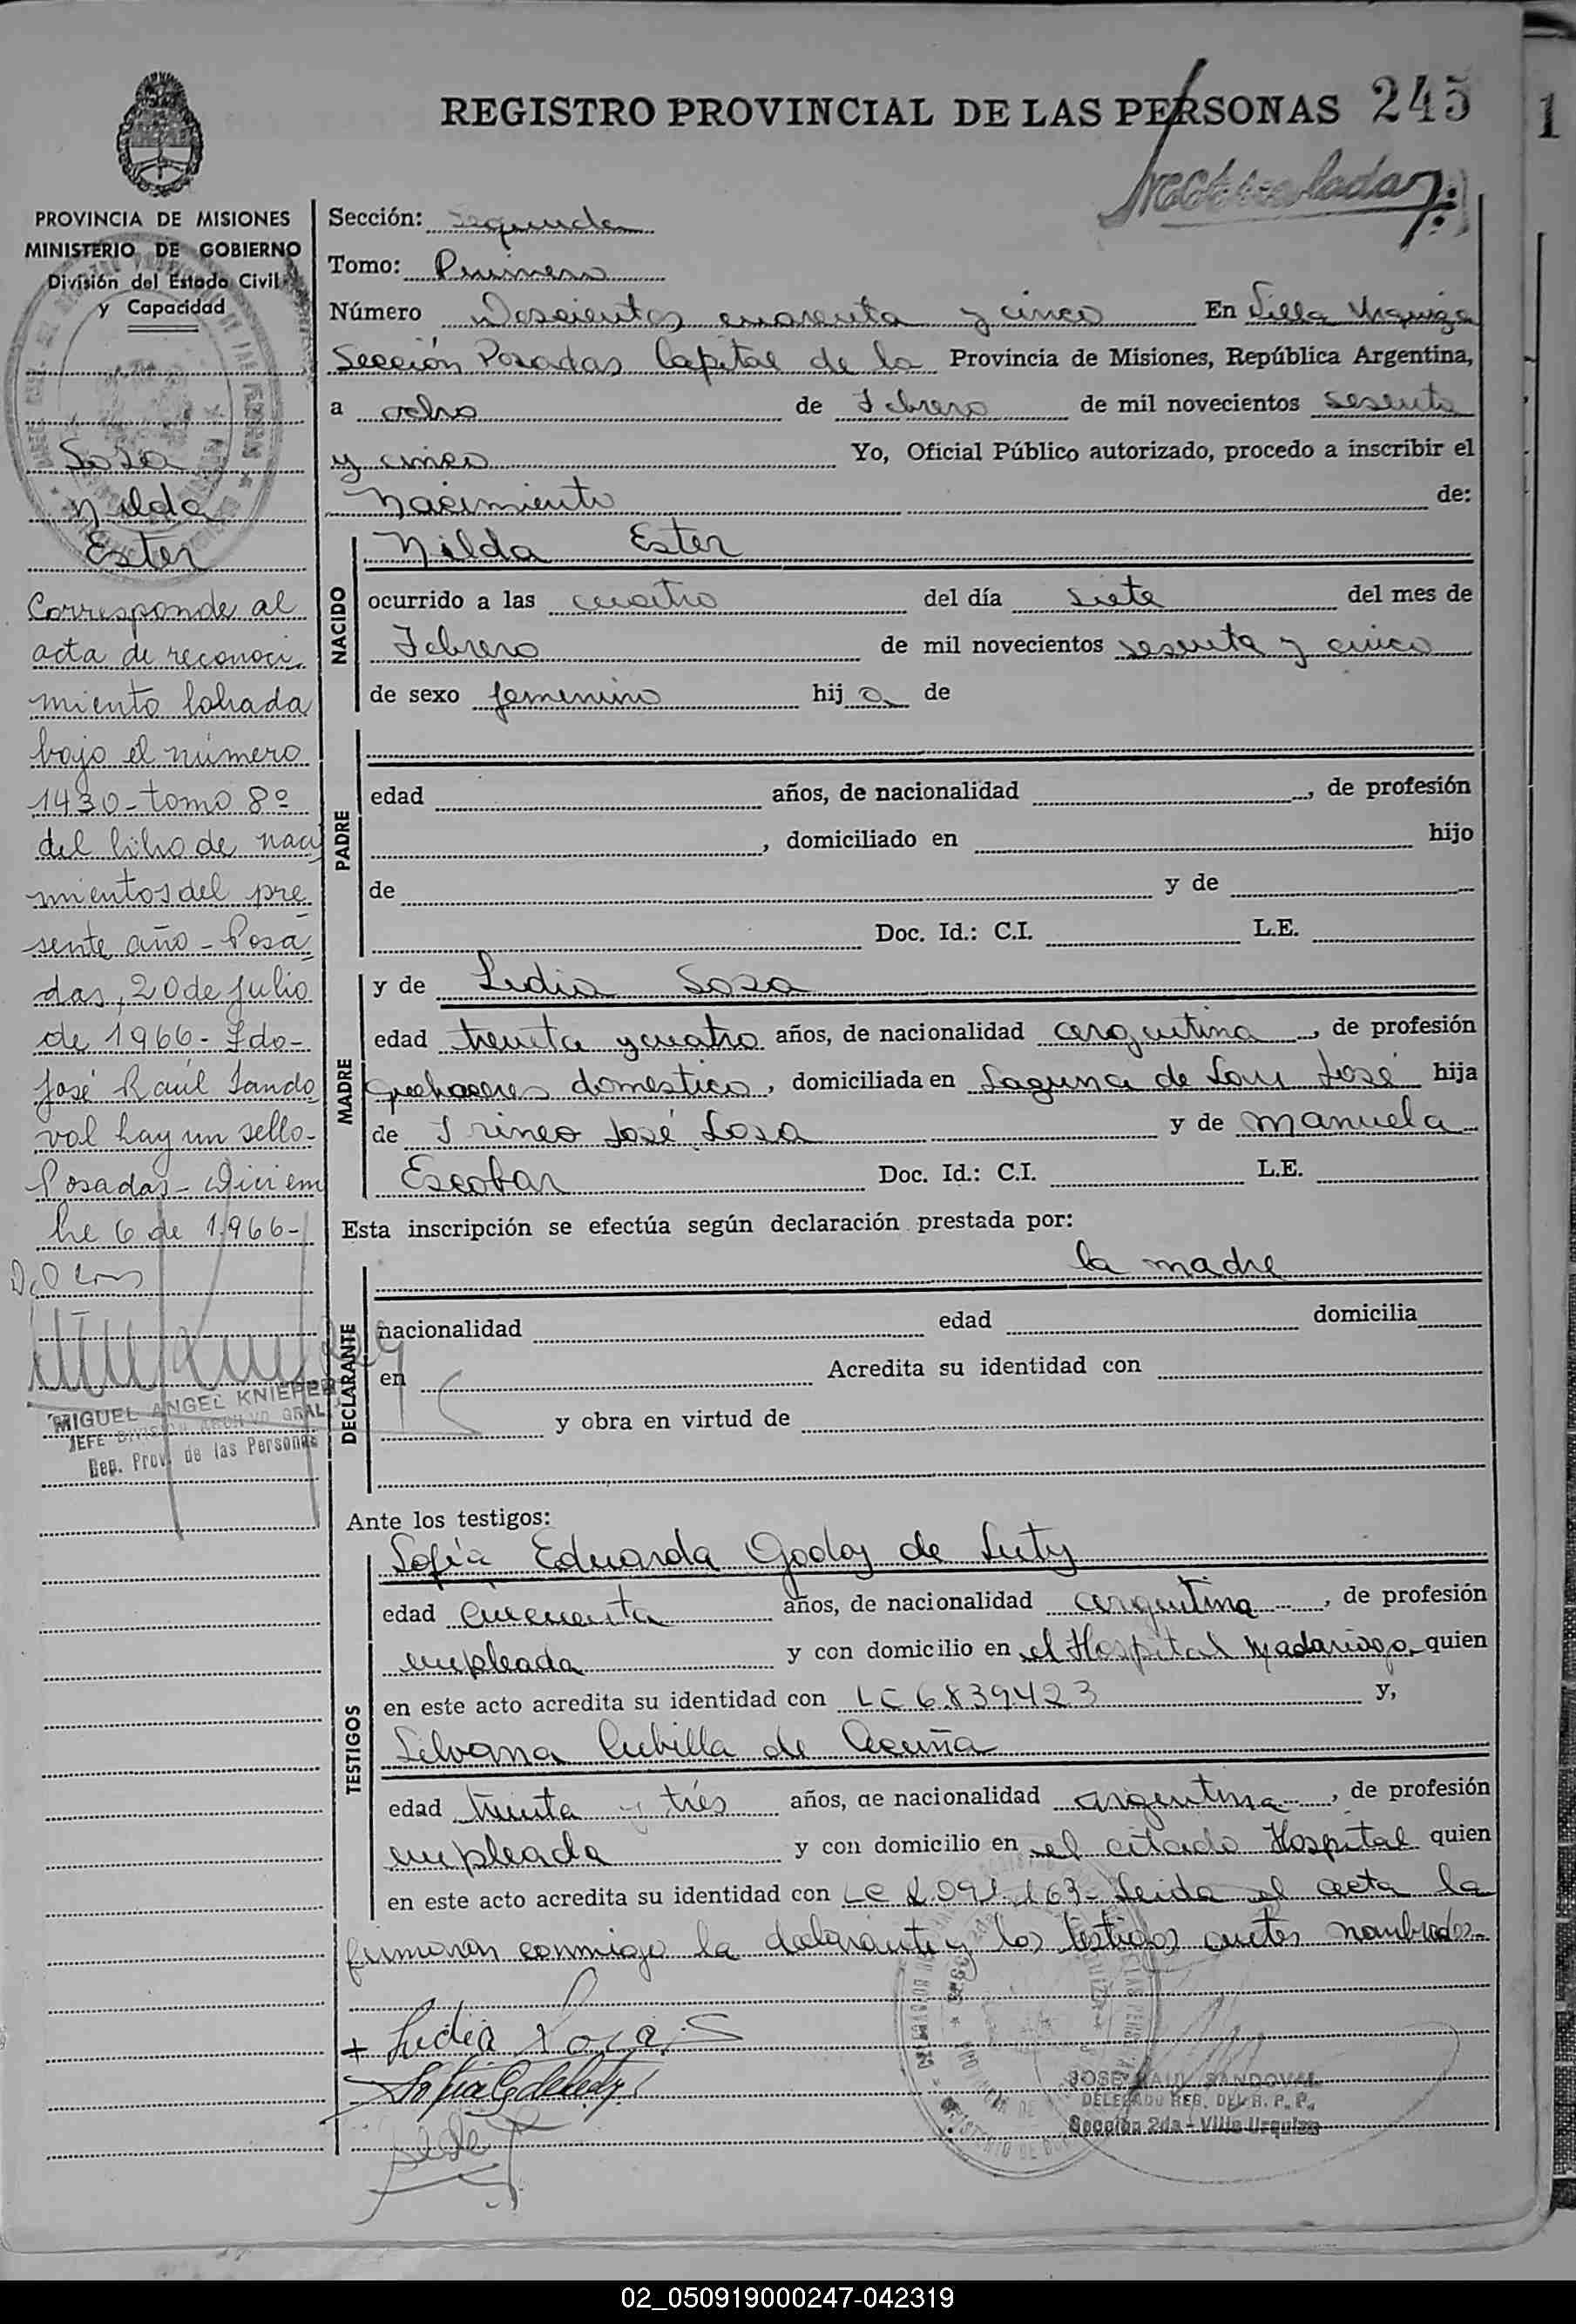 REGISTRO PROVINCIAL DE LAS PERSONAS 245
1
PROVINCIA DE MISIONES
MINISTERIO DE GOBIERNO
División del Estado Civil
y Capacidad
Sosa
Nilda
Ester
Corresponde al
acta de reconoci
miento labrada
bajo el número
1430-tomo 8º
del libro de naci
mientos del pre
sente año - Posa
das, 20 de julio
de 1966- Fdo-
José Raúl Sando
val hay un sello-
Posadas- Diciem
bre 6 de 1966-
MIGUEL ANGEL KNIEPER
JEFE DIVISION ARCHIVO GRAL
Rep. Prov. de las Personas
Sección: Segunda
Tomo: Primero
Número Doscientos cuarenta y cinco En Villa Urquiza
Sección Posadas Capital de la Provincia de Misiones, República Argentina,
a ocho de Febrero de mil novecientos sesenta
y cinco Yo, Oficial Público autorizado, procedo a inscribir el
Nacimiento de:
NACIDO
Nilda Ester
ocurrido a las cuatro del día siete del mes de
Febrero de mil novecientos sesenta y cinco
de sexo femenino hij a de
PADRE
edad años, de nacionalidad , de profesión
, domiciliado en hijo
de y de
Doc. Id.: C.I. L.E.
MADRE
y de Lidia Sosa
edad treinta y cuatro años, de nacionalidad argentina , de profesión
quehaceres domestico, domiciliada en Laguna de San José hija
de Irineo José Sosa y de Manuela
Escobar Doc. Id.: C.I. L.E.
Esta inscripción se efectúa según declaración prestada por:
la madre
DECLARANTE
nacionalidad edad domicilia
en Acredita su identidad con
y obra en virtud de
Ante los testigos:
TESTIGOS
Sofía Eduarda Godoy de Luty
edad cincuenta años, de nacionalidad argentina , de profesión
empleada y con domicilio en el Hospital Madariaga quien
en este acto acredita su identidad con LC 6839423 y,
Silvana Cubilla de Acuña
edad treinta y trés años, de nacionalidad argentina , de profesión
empleada y con domicilio en el citado Hospital quien
en este acto acredita su identidad con LC Leida el acta la
firmaran conmigo la declarante y los testigos antes nombrados.-
Lidia Sosa
JOSE RAUL SANDOVAL
DELEGADO REG. DEL R. P. P.
Sección 2da - Villa Urquiza
02_050919000247-042319